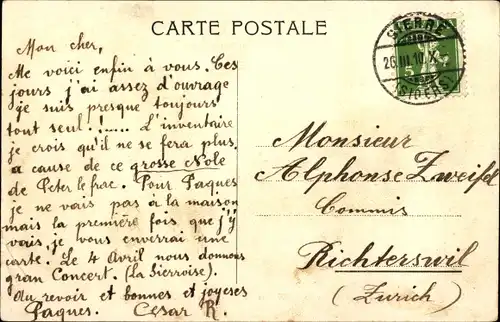 CARTE POSTALE
SIERRE
26.III.10.X
(SIDERS)
Mon cher,
Me voici enfin à vous. Ces
jours j'ai assez d'ouvrage
je suis presque toujours
tout seul!..... L'inventaire
je crois qu'il ne se fera plus
a cause de ce grosse Nole
de Peter le frac. Pour Paques
je ne vais pas à la maison
mais la première fois que j'y
vais, je vous enverrai une
carte. Le 4 Avril nous donnons
gran Concert. (La Sierroise).
Au revoir et bonnes et joyeses
Paques. César R.
Monsieur
Alphonse Zweifel
Commis
Richterswil
(Zurich)